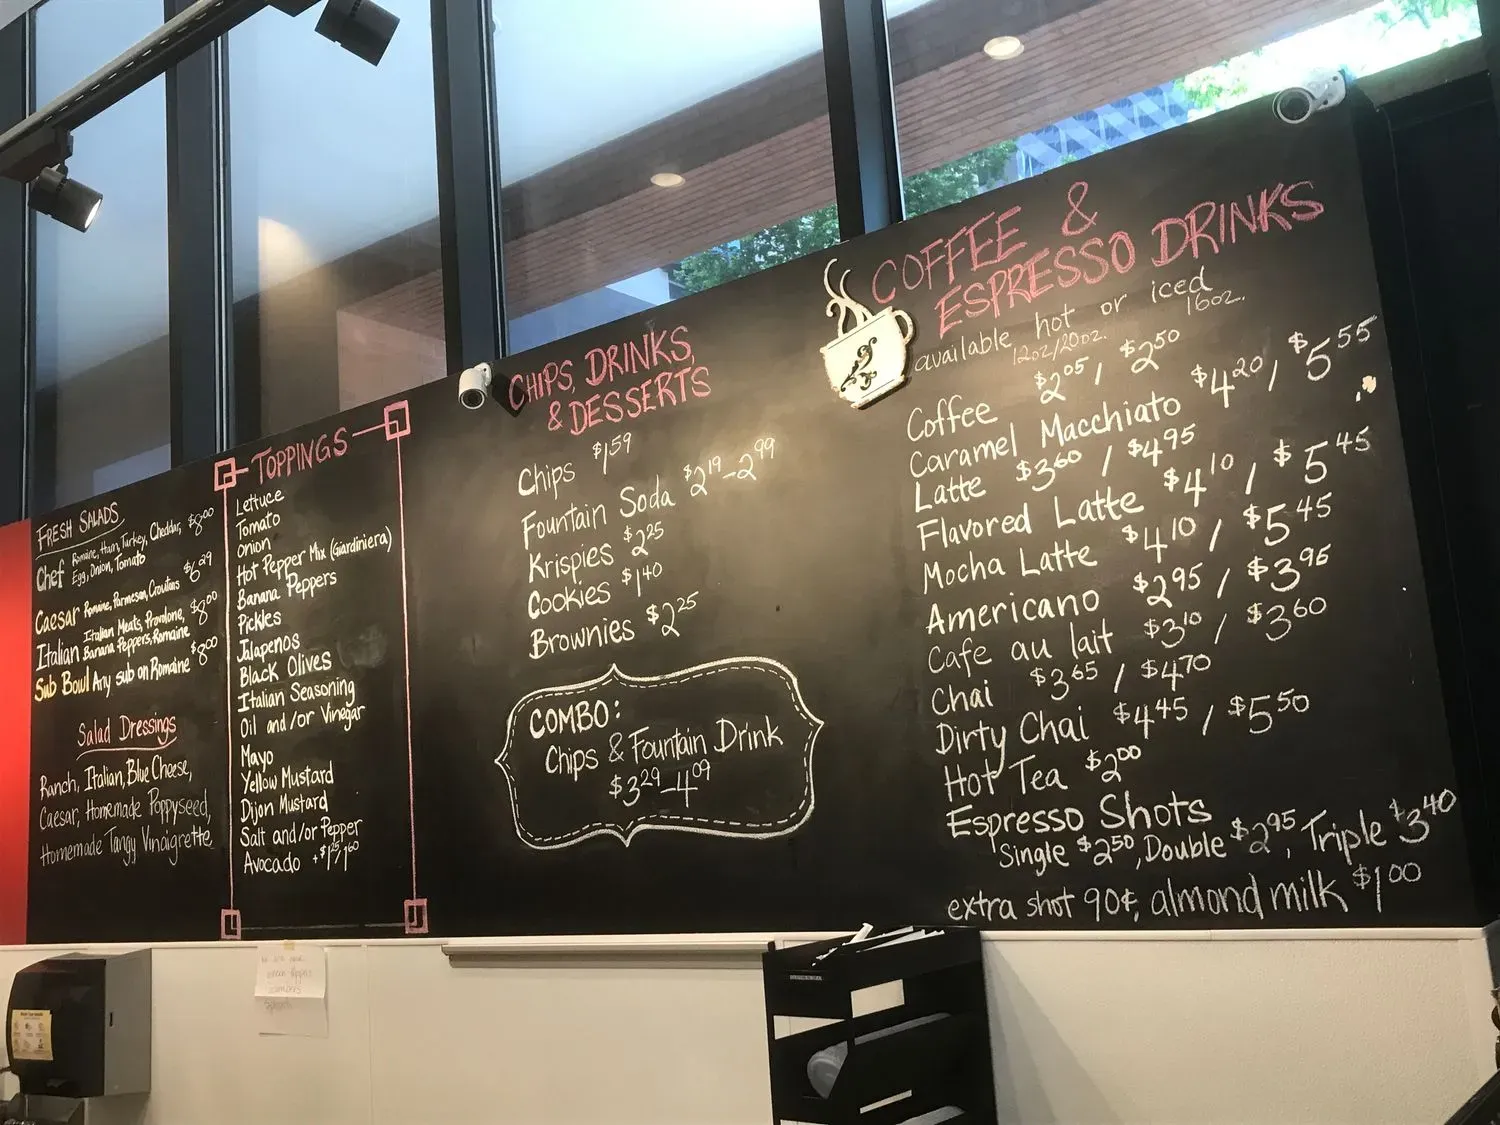 FRESH SALADS
Chef Romaine, Ham, Turkey, Cheddar, $8.00
Egg, Onion, Tomato
Caesar Romaine, Parmesan, Croutons $6.29
Italian Italian Meats, Provolone, $8.00
Banana Peppers, Romaine
Sub Bowl Any sub on Romaine $8.00
Salad Dressings
Ranch, Italian, Blue Cheese,
Caesar, Homemade Poppyseed,
Homemade Tangy Vinaigrette
TOPPINGS
Lettuce
Tomato
Onion
Hot Pepper Mix (Giardiniera)
Banana Peppers
Pickles
Jalapenos
Black Olives
Italian Seasoning
Oil and/or Vinegar
Mayo
Yellow Mustard
Dijon Mustard
Salt and/or Pepper
Avocado +$1.25/1.60
CHIPS, DRINKS,
& DESSERTS
Chips $1.59
Fountain Soda $2.19-2.99
Krispies $2.25
Cookies $1.40
Brownies $2.25
COMBO:
Chips & Fountain Drink
$3.29-4.09
COFFEE &
ESPRESSO DRINKS
available hot or iced
12oz/20oz. 16oz.
Coffee $2.05 / $2.50
Caramel Macchiato $4.20 / $5.55
Latte $3.60 / $4.95
Flavored Latte $4.10 / $5.45
Mocha Latte $4.10 / $5.45
Americano $2.95 / $3.95
Cafe au lait $3.10 / $3.60
Chai $3.65 / $4.70
Dirty Chai $4.45 / $5.50
Hot Tea $2.00
Espresso Shots
Single $2.50, Double $2.95, Triple $3.40
extra shot 90¢, almond milk $1.00